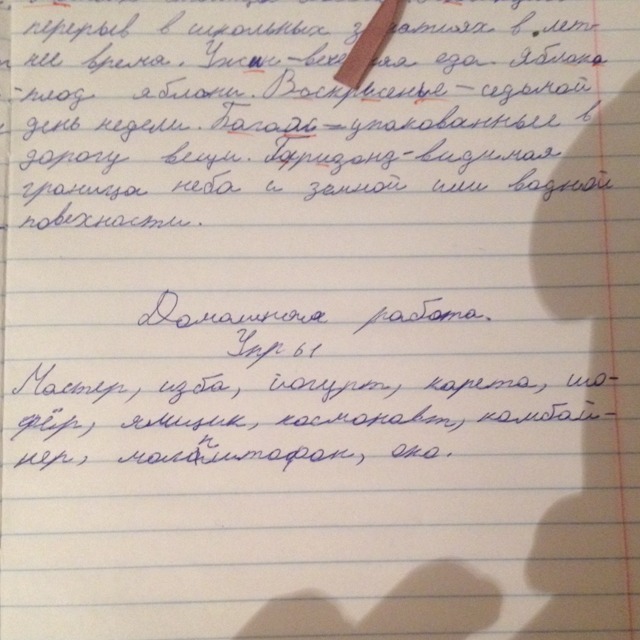 перерыв в школьных занятиях в лет-
нее время. Ужин-вечерняя еда. Яблоко
-плод яблони. Воскресенье-седьмой
день недели. Багаж-упакованные в
дорогу вещи. Горизонт-видимая
граница неба и земной или водной
повехности.
Домашняя работа.
Упр 61
Мастер, изба, йогурт, карета, шо-
фёр, ямщик, космонавт, комбай-
нер, магнитофон, око.